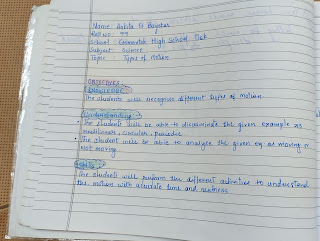 Name: Ankita
Roll no: 99
School: High School
Subject: Science
Topic: Types of Motion
OBJECTIVES
KNOWLEDGE
The students will recognise different types of motion.
Understanding
• The student will be able to discriminate the given example as
rectilinear, circular, periodic
• The student will be able to analyse the given eg. as moving or
not moving
Skills
The students will perform the different activities to understand
the motion with accurate time and neatness